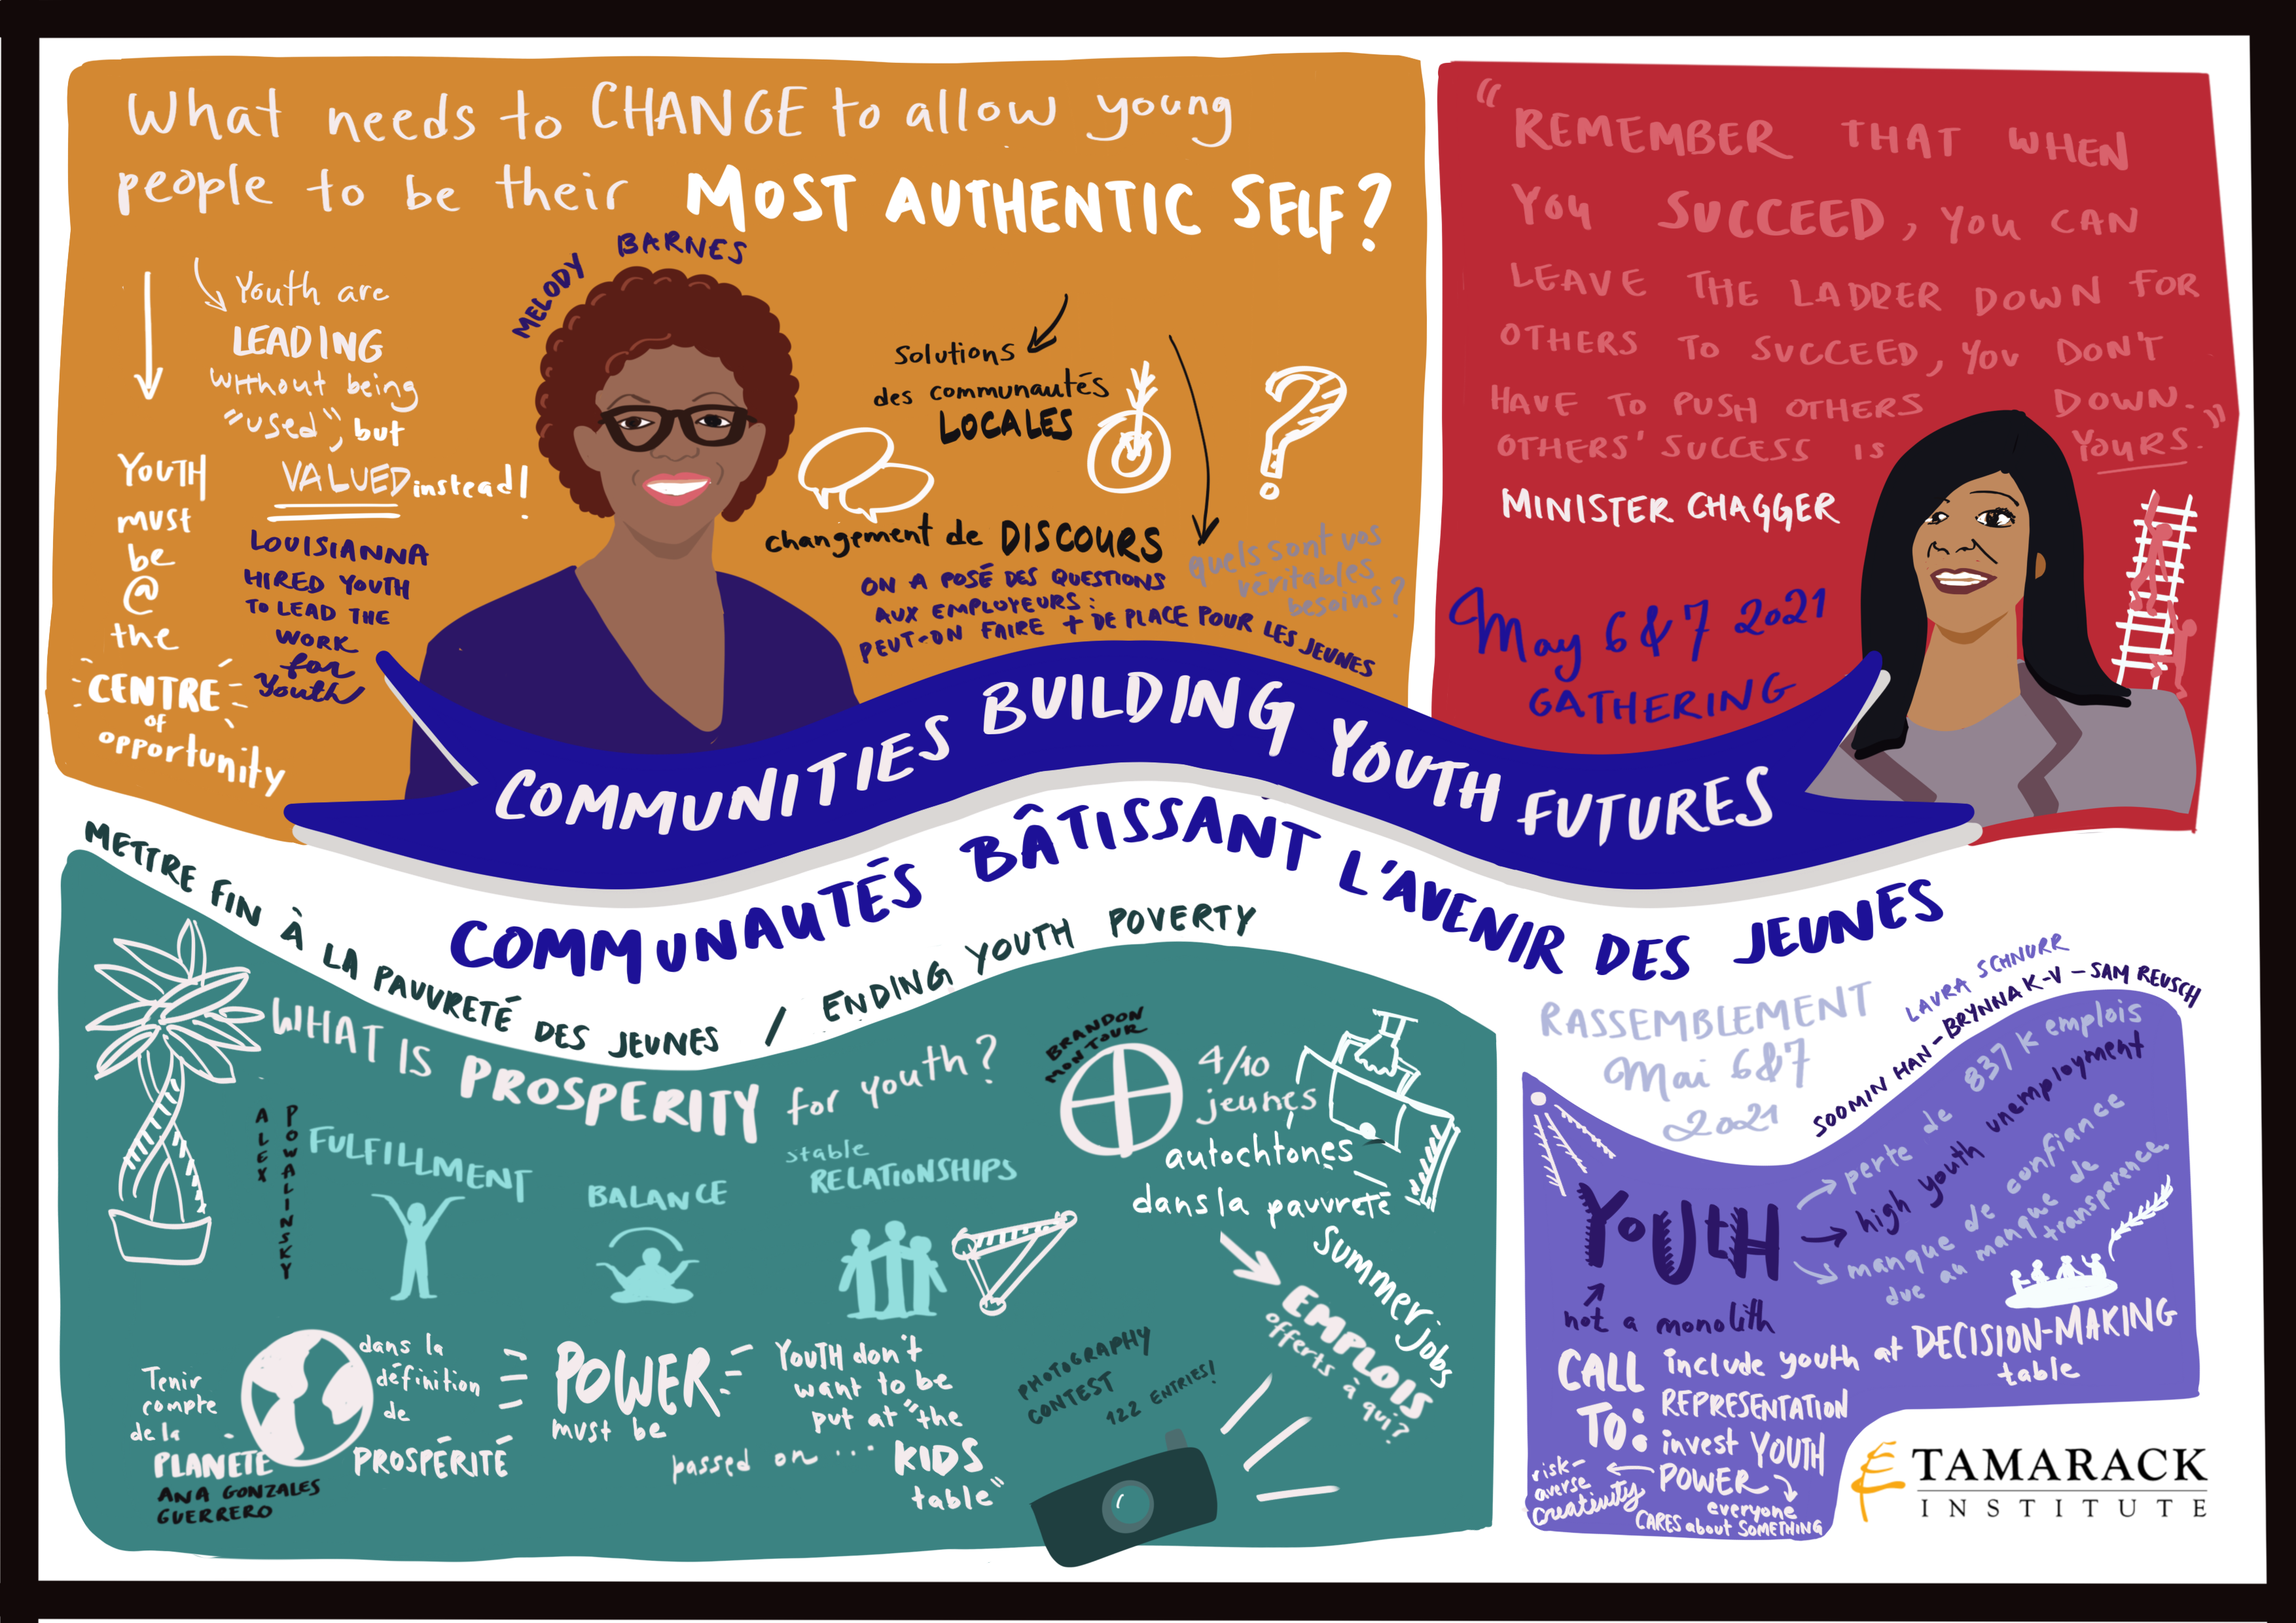 What needs to CHANGE to allow young
people to be their MOST AUTHENTIC SELF?
Youth are
LEADING
without being
"used", but
VALUED instead!
YOUTH
must
be
@
the
CENTRE
OF
opportunity
LOUISIANNA
HIRED YOUTH
TO LEAD THE
WORK
for
Youth
MELODY BARNES
Solutions
des communautés
LOCALES
changement de DISCOURS
ON A POSÉ DES QUESTIONS
AUX EMPLOYEURS:
PEUT-ON FAIRE + DE PLACE POUR LES JEUNES
quels sont vos
véritables
besoins?
"REMEMBER THAT WHEN
YOU SUCCEED, YOU CAN
LEAVE THE LADDER DOWN FOR
OTHERS TO SUCCEED, YOU DON'T
HAVE TO PUSH OTHERS DOWN.
OTHERS' SUCCESS IS YOURS."
MINISTER CHAGGER
May 6 & 7 2021
GATHERING
COMMUNITIES BUILDING YOUTH FUTURES
COMMUNAUTÉS BÂTISSANT L'AVENIR DES JEUNES
RASSEMBLEMENT
Mai 6&7
2021
METTRE FIN À LA PAUVRETÉ DES JEUNES / ENDING YOUTH POVERTY
WHAT IS PROSPERITY for youth?
ALEX
POWALINSKY
FULFILLMENT
BALANCE
stable
RELATIONSHIPS
BRANDON
MONTOUR
4/10
jeunes
autochtones
dans la pauvreté
Summer jobs
EMPLOIS
offerts à qui?
Tenir
compte
de la
PLANÈTE
dans la
définition
de
PROSPÉRITÉ
ANA GONZALES
GUERRERO
POWER
must be
passed on...
YOUTH don't
want to be
put at "the
KIDS
table"
PHOTOGRAPHY
CONTEST
122 ENTRIES!
LAURA SCHNURR
SOOMIN HAN - BRYNNA K-V - SAM REUSCH
YOUtH
not a monolith
perte de 837 K emplois
high youth unemployment
manque de confiance
due au manque de
transparence.
CALL
TO:
include youth at DECISION-MAKING
table
REPRESENTATION
invest YOUTH
POWER
risk-
averse
creativity
everyone
CARES about SOMETHING
TAMARACK
INSTITUTE